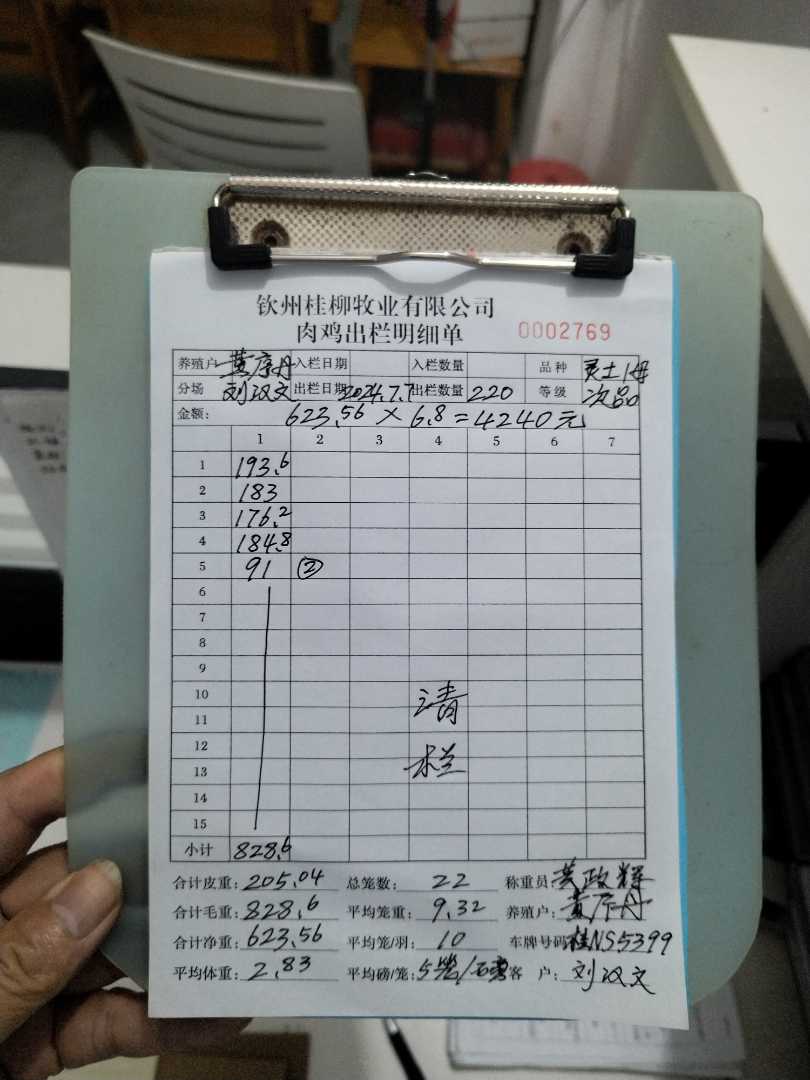 钦州桂柳牧业有限公司
肉鸡出栏明细单 0002769
养殖户 黄序丹 入栏日期 入栏数量 品种 灵土1母
分场 刘汉文 出栏日期 2024.7.7 出栏数量 220 等级 次品
金额: 623.56 × 6.8 = 4240元
1 2 3 4 5 6 7
1 193.6
2 183
3 176.2
4 184.8
5 91 ②
6
7
8
9
10
11
12
13
14
15
清
栏
小计 828.6
合计皮重: 205.04 总笼数: 22 称重员 黄政辉
合计毛重: 828.6 平均笼重: 9.32 养殖户: 黄序丹
合计净重: 623.56 平均笼/羽: 10 车牌号码 桂NS5399
平均体重: 2.83 平均磅/笼: 5笼/磅 客 户: 刘汉文